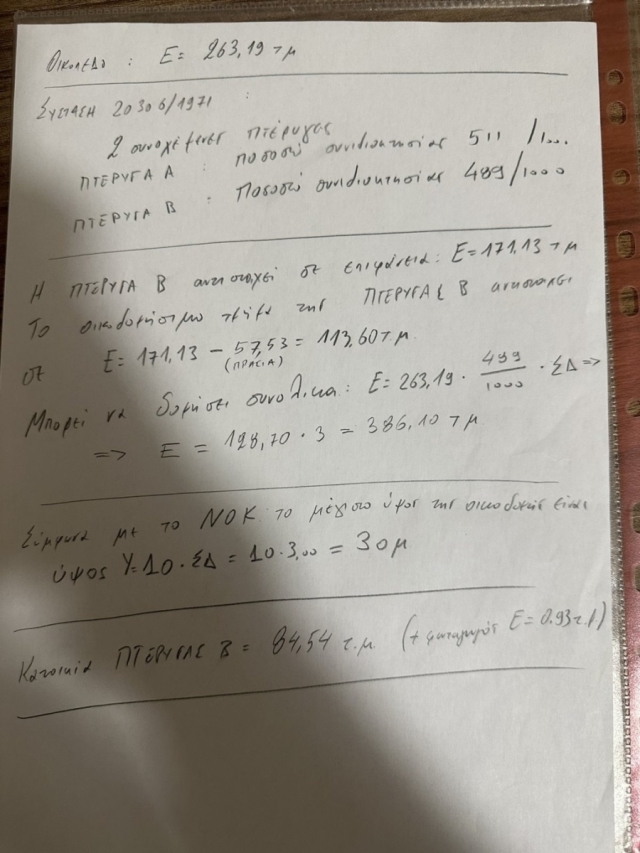 Οικόπεδο : Ε = 263,19 τμ
Σύσταση 20306/1971 :
2 συνεχόμενες πτέρυγες
ΠΤΕΡΥΓΑ Α : ποσοστό συνιδιοκτησίας 511 /1000
ΠΤΕΡΥΓΑ Β : Ποσοστό συνιδιοκτησίας 489/1000
Η ΠΤΕΡΥΓΑ Β αντιστοιχεί σε επιφάνεια: Ε=171,13 τμ
Το οικοδομήσιμο τμήμα της ΠΤΕΡΥΓΑΣ Β αντιστοιχεί
σε Ε= 171,13 – 57,53 = 113,60 τμ.
(ΠΡΑΣΙΑ)
Μπορεί να δομήσει συνολικα: Ε= 263,19 · 489/1000 · ΣΔ =>
=> Ε = 128,70 · 3 = 386,10 τμ
Σύμφωνα με το ΝΟΚ το μέγιστο ύψος της οικοδομής είναι
ύψος Υ=10 · ΣΔ = 10 · 3,00 = 30 μ
Κατοικία ΠΤΕΡΥΓΑΣ Β = 84,54 τ.μ. (+ φωταγωγός Ε= 0.93 τ.μ)